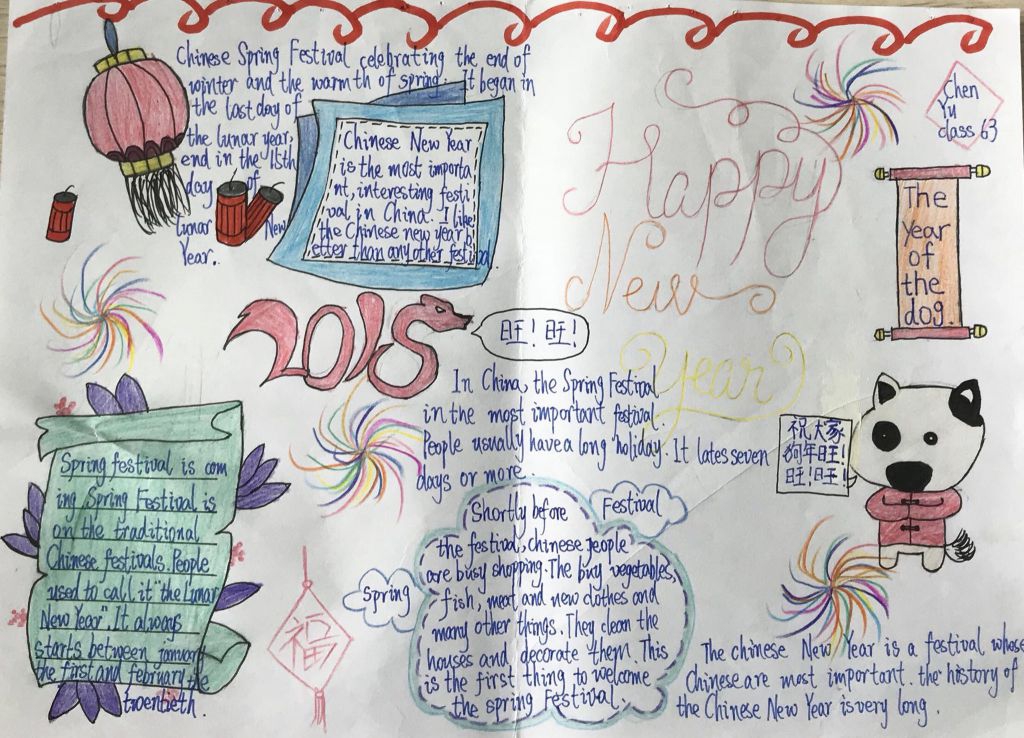 Chinese Spring Festival celebrating the end of
winter and the warmth of spring. It began in
the last day of
the lunar year,
end in the 15th
day of
lunar New
Year.
Chinese New Year
is the most importa
nt, interesting festi
val in China. I like
the Chinese new year b
etter than any other festival
Happy
New
Year
Chen
Yu
class 63
The
Year
of
the
dog.
2018
旺！旺！
In China, the Spring Festival
in the most important festival.
People usually have a long holiday. It lates seven
days or more.
祝大家
狗年旺！
旺！旺！
Spring festival is com
ing Spring Festival is
on the traditional
Chinese festivals. People
used to call it "the Lunar
New Year". It always
starts between
the first and february the
twentieth.
福
Spring
Festival
Shortly before
the festival, chinese people
are busy shopping. The buy vegetables,
fish, meat and new clothes and
many other things. They clean the
houses and decorate them. This
is the first thing to welcome
the spring Festival.
The chinese New Year is a festival whose
Chinese are most important. the history of
the Chinese New Year is very long.